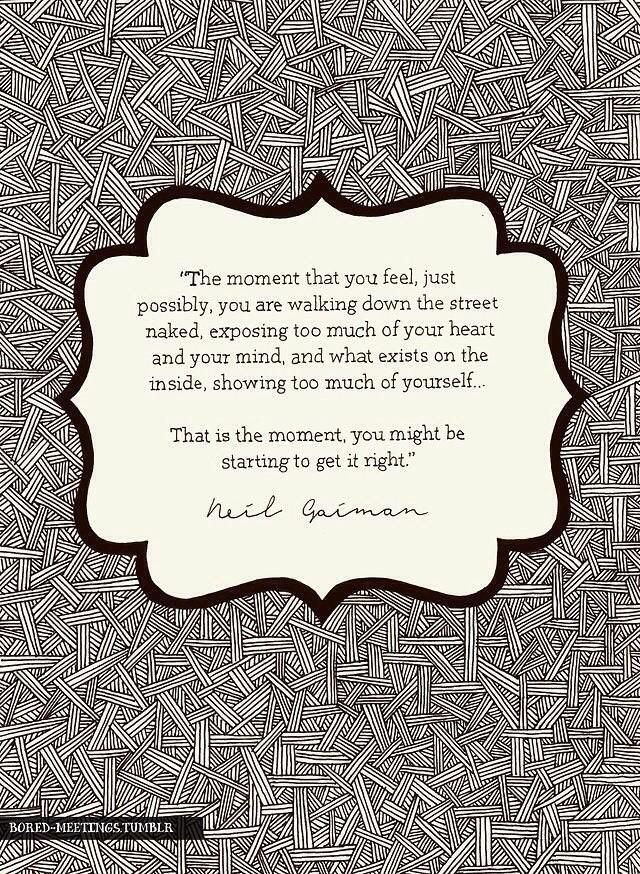 “The moment that you feel, just
possibly, you are walking down the street
naked, exposing too much of your heart
and your mind, and what exists on the
inside, showing too much of yourself...
That is the moment, you might be
starting to get it right.”
Neil Gaiman
BORED-MEETINGS.TUMBLR